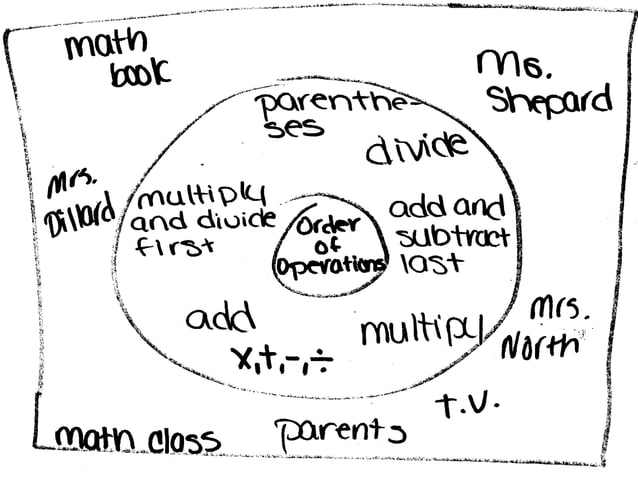 math
book
Ms.
Shepard
parenthe-
ses
divide
Mrs.
Dillard
multiply
and divide
first
Order
of
Operations
add and
subtract
last
add
x,+,-,÷
multiply
Mrs.
North
T.V.
math class
parents